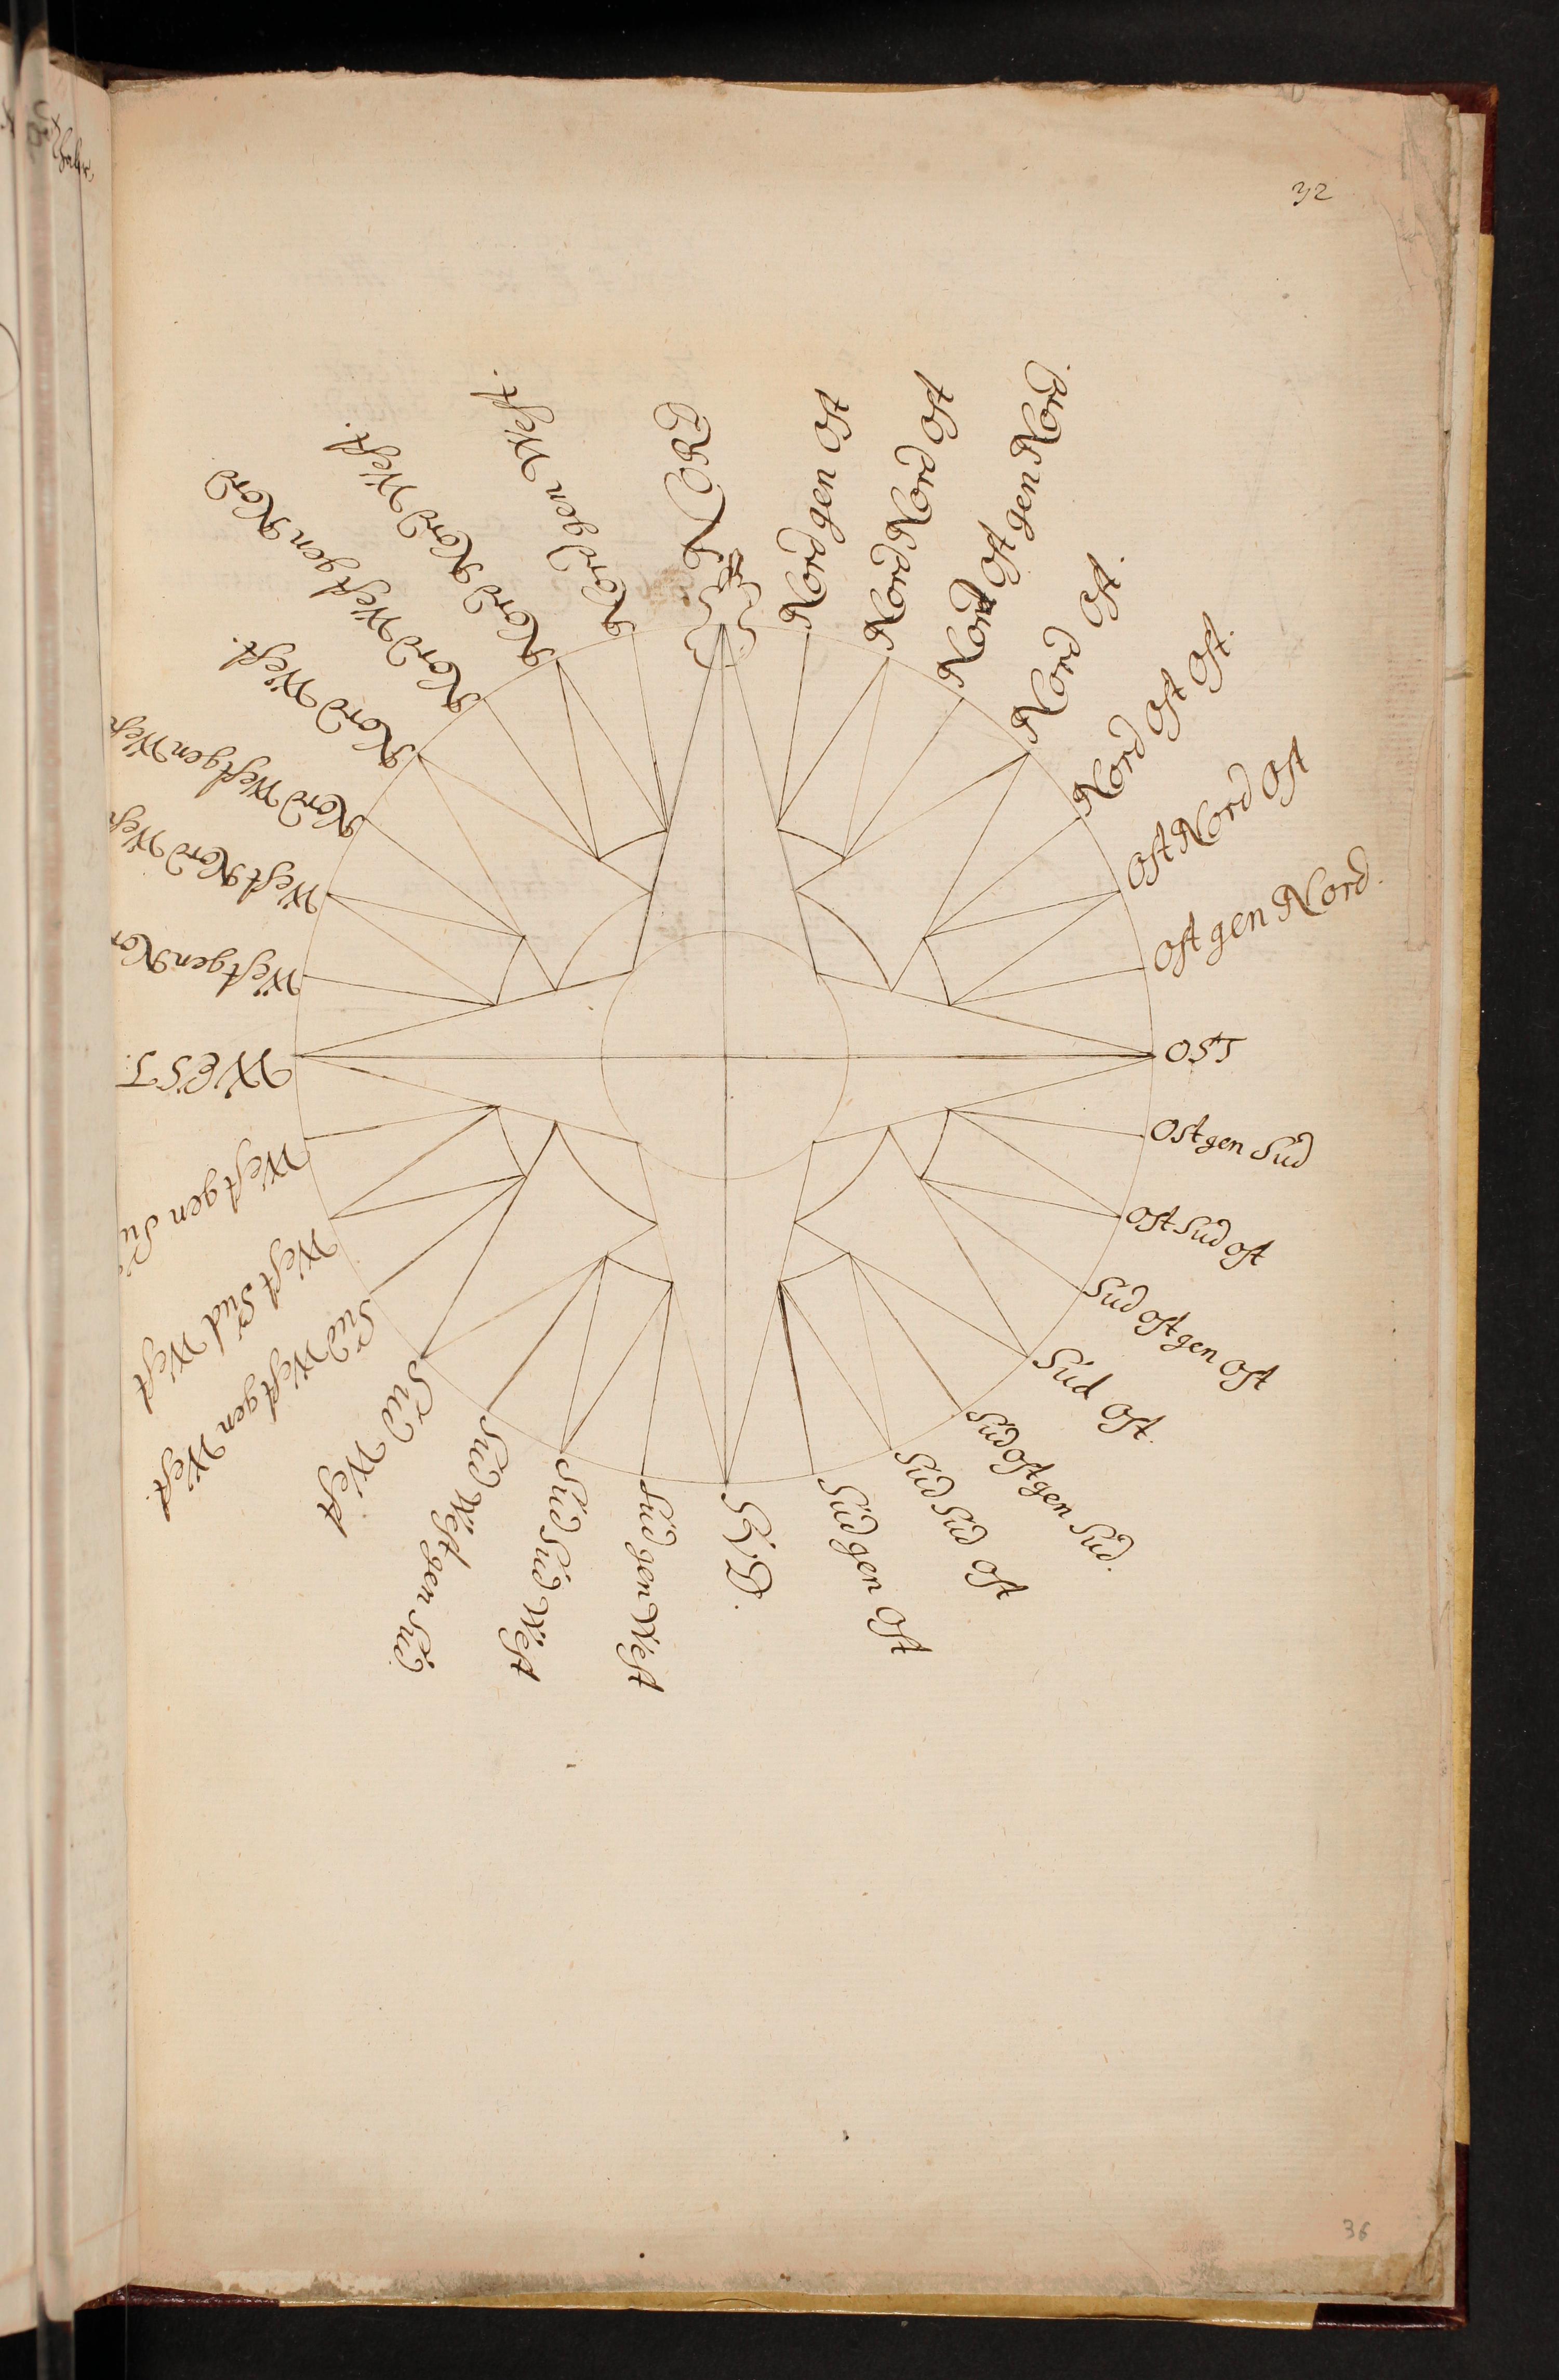 32
NORD
Nord gen Ost
Nord Nord Ost
Nord Ost gen Nord.
Nord Ost.
Nord Ost Ost.
Ost Nord Ost
Ost gen Nord.
OST
Ost gen Sùd
Ost Sùd Ost
Sùd Ost gen Ost
Sùd Ost.
Sùd Ost gen Sùd.
Sùd Sùd Ost
Sùd gen Ost
SVD.
Sùd gen West
Sùd Sùd West
Sùd West gen Sùd.
Sùd West
Sùd West gen West.
West Sùd West
West gen Sù
WEST.
West gen Nor
West Nord West
Nord West gen West
Nord West.
Nord West gen Nord
Nord Nord West.
Nord gen West.
36